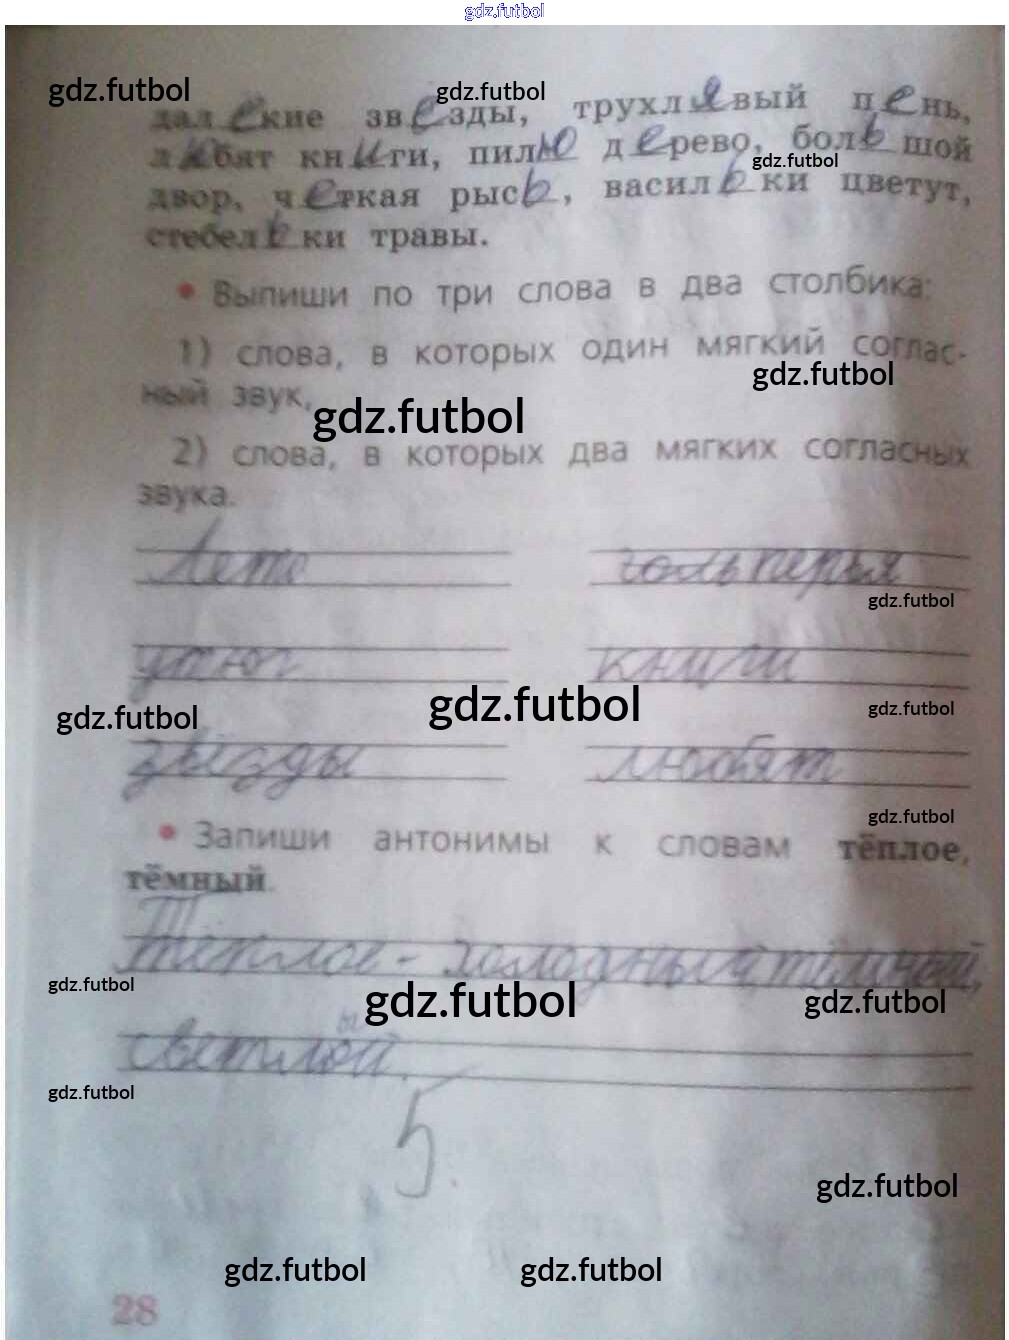 gdz.futbol
gdz.futbol
gdz.futbol
далекие звезды, трухлявый пень,
любят книги, пилю дерево, большой
gdz.futbol
двор, четкая рысь, васильки цветут,
стебельки травы.
• Выпиши по три слова в два столбика:
1) слова, в которых один мягкий соглас-
gdz.futbol
ный звук,
gdz.futbol
2) слова, в которых два мягких согласных
звука.
Лето
перья
gdz.futbol
утюг книги
gdz.futbol
gdz.futbol
gdz.futbol
звёзды любят
gdz.futbol
• Запиши антонимы к словам тёплое,
тёмный.
Тёплое - холодный, тёмный,
gdz.futbol
gdz.futbol
gdz.futbol
светлый.
gdz.futbol
5
gdz.futbol
gdz.futbol
gdz.futbol
28